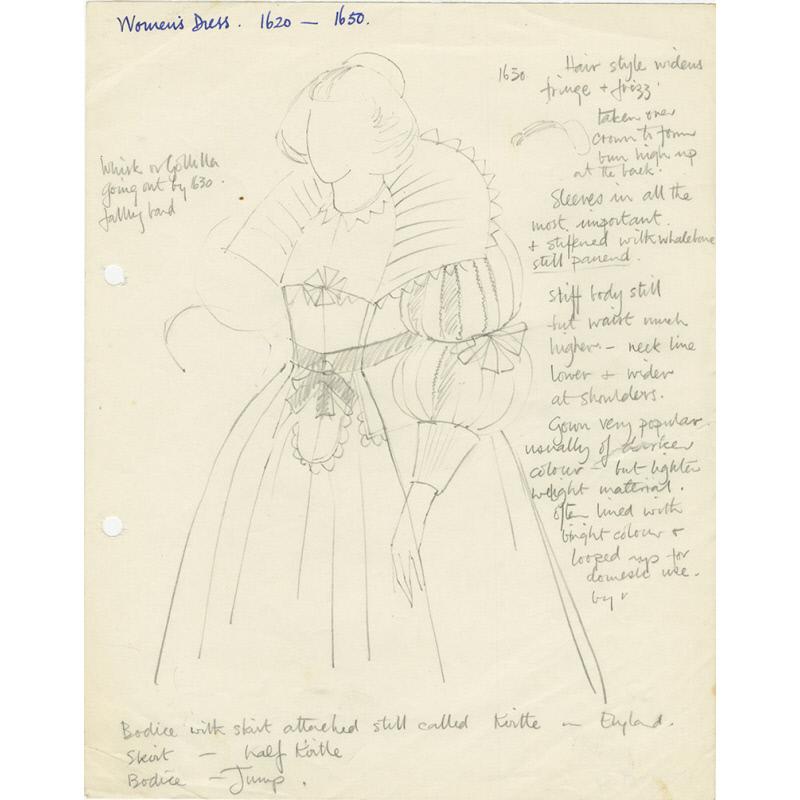 Women's Dress. 1620 — 1650.
1630. Hair style widens
fringe + frizz'
taken over
crown to form
bun high up
at the back.
Whisk or Golilla
going out by 1630.
falling band
Sleeves in all the
most important.
+ stiffened with whalebone
still paned.
Stiff body still
but waist much
higher - neck line
lower + wider
at shoulders.
Gown very popular
usually of darker
colour - but lighter
weight material.
often lined with
bright colour &
looped up for
domestic use.
by
Bodice with skirt attached still called Kirtle in England.
Skirt — half Kirtle
Bodice — Jump.